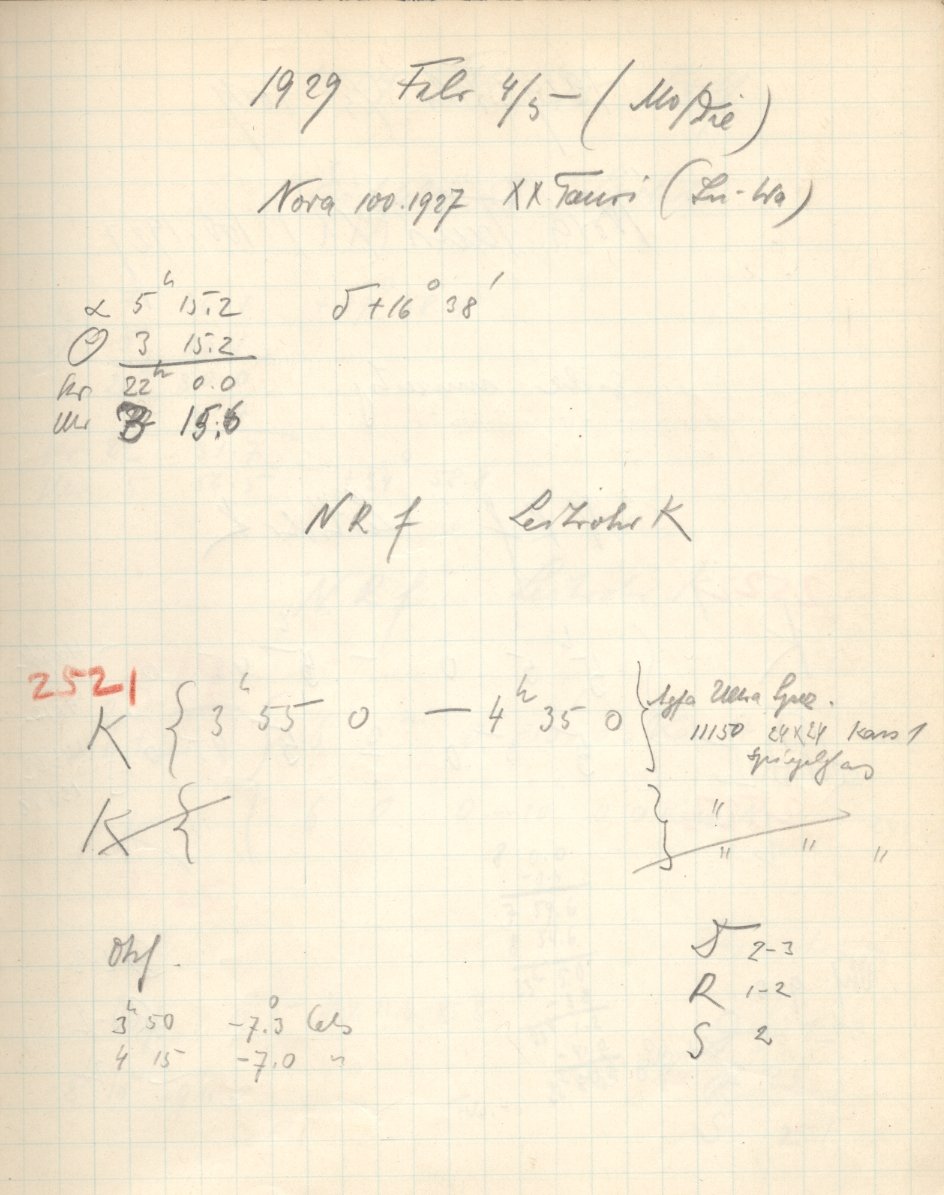 1929 Febr 4/5 — (Mo/Die)
Nova 100.1927 XX Tauri (Lu-Wa)
α 5ʰ 15.2 δ +16° 38′
3 15.2
22ʰ 0.0
15.6
NRf Leitrohr K
2521
K { 3ʰ 55 0 — 4ʰ 35 0 } Agfa Ultra Spez.
11150 24x24 Kass 1
Spiegelglas
K { } "
" " "
Obj. 2-3
R 1-2
3ʰ 50 -7.3° Cels
S 2
4 15 -7.0 "